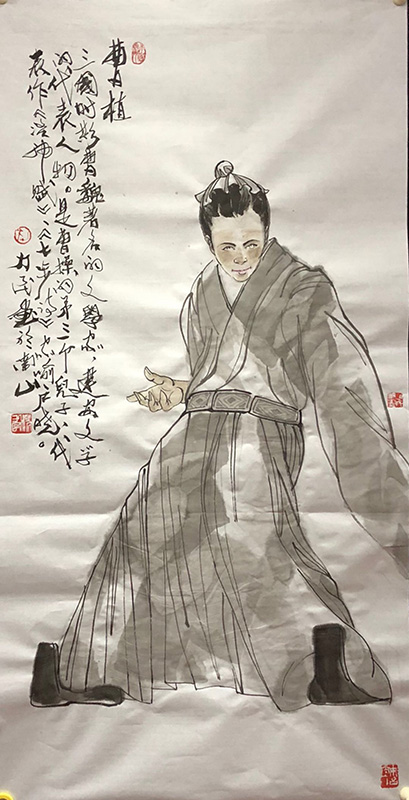 曹植
三國时期曹魏著名的文學家、建安文学
的代表人物。是曹操的第三个兒子。代
表作《洛神赋》《七步诗》家喻户晓。
画於南山